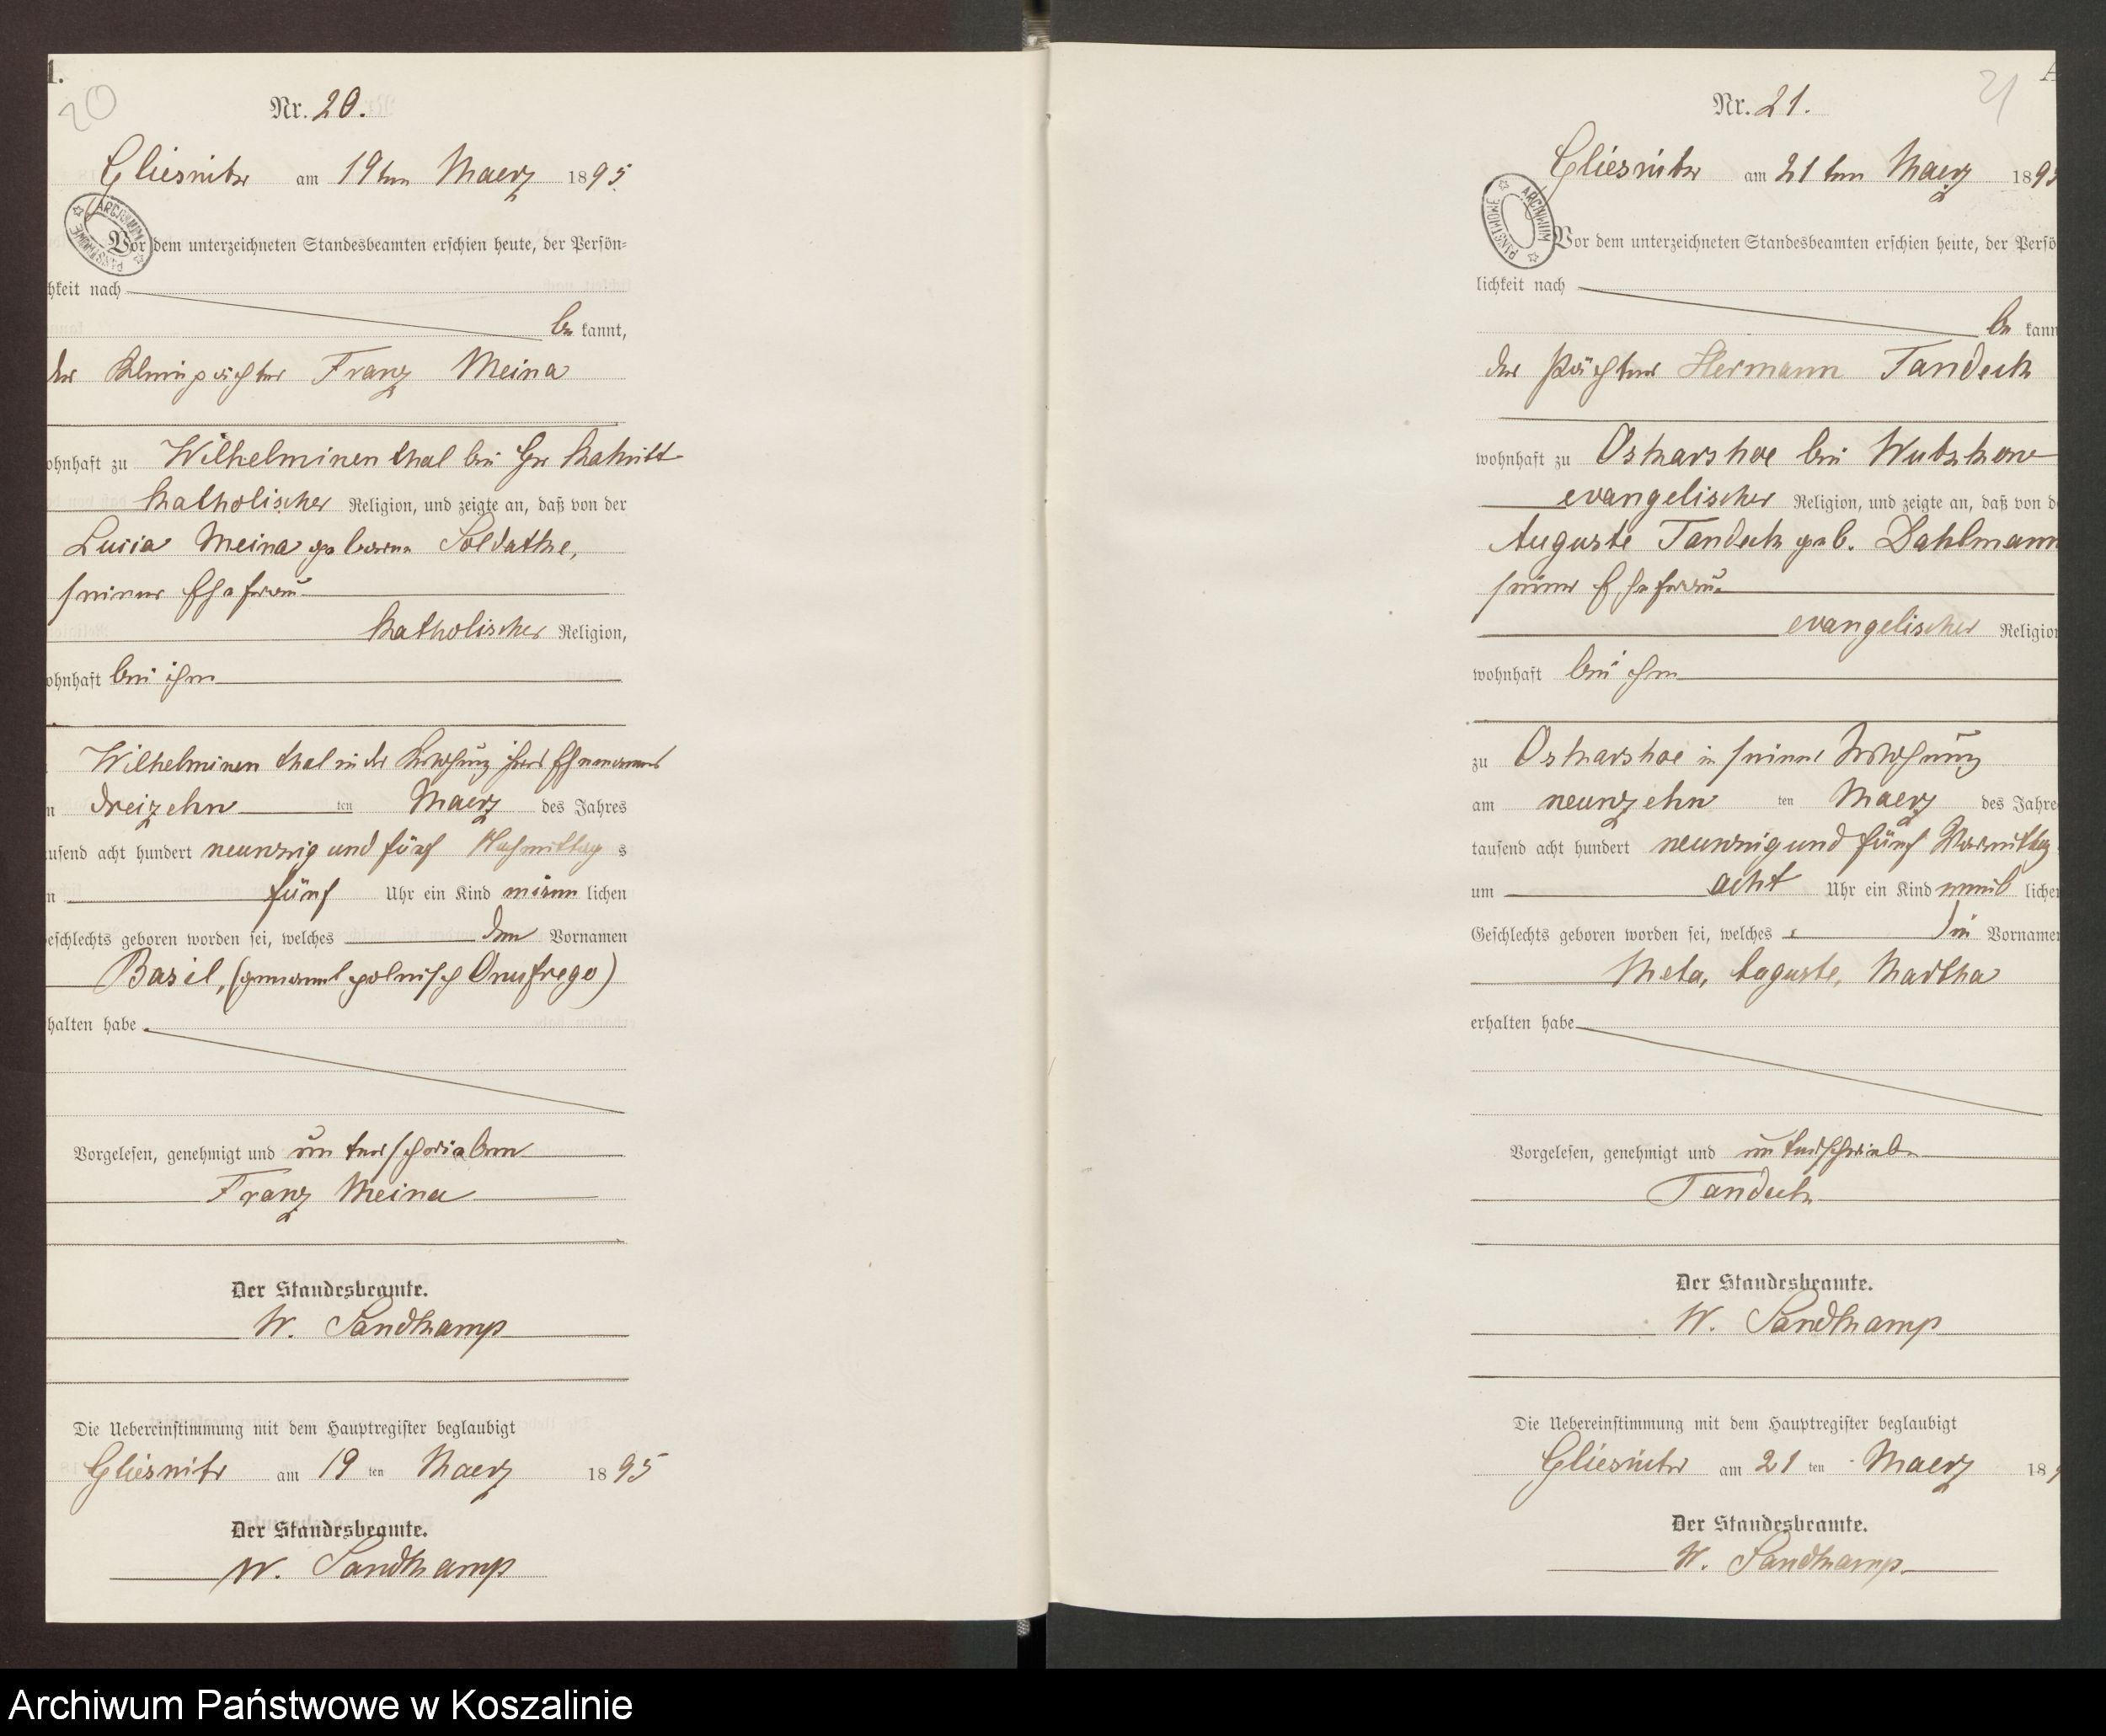 20
Nr. 20.
Gliesnitz am 19ten Maerz 1895
ARCHIWUM PAŃSTWOWE
Vor dem unterzeichneten Standesbeamten erschien heute, der Persön=
hkeit nach
be kannt,
der Kleinpächter Franz Meina
ohnhaft zu Wilhelminenthal bei Gr
katholischer Religion, und zeigte an, daß von der
Lucia Meina geborene Soldatke,
seiner Ehefrau
katholischer Religion,
ohnhaft bei ihm
Wilhelminenthal in der Wohnung ihres Ehemannes
n dreizehn ten Maerz des Jahres
usend acht hundert neunzig und fünf Nachmittag s
n fünf Uhr ein Kind männ lichen
eschlechts geboren worden sei, welches den Vornamen
Basil, (genannt polnisch Onufrego)
halten habe
Vorgelesen, genehmigt und unterschrieben
Franz Meina
Der Standesbeamte.
W. Sandkamp
Die Uebereinstimmung mit dem Hauptregister beglaubigt
Gliesnitz am 19 ten Maerz 1895
Der Standesbeamte.
W. Sandkamp
21
Nr. 21.
Gliesnitz am 21ten Maerz 189
ARCHIWUM PAŃSTWOWE
Vor dem unterzeichneten Standesbeamten erschien heute, der Persö
lichkeit nach
be kann
der Pächter Hermann Tandeck
wohnhaft zu Oskarshoe bei Wutzkow
evangelischer Religion, und zeigte an, daß von d
Auguste Tandeck geb. Dahlmann
seiner Ehefrau
evangelischer Religion
wohnhaft bei ihm
zu Oskarshoe in seiner Wohnung
am neunzehn ten Maerz des Jahre
tausend acht hundert neunzig und fünf Vormittag
um acht Uhr ein Kind weib liche
Geschlechts geboren worden sei, welches die Vorname
Meta, Auguste, Martha
erhalten habe
Vorgelesen, genehmigt und unterschrieben
Tandeck
Der Standesbeamte.
W. Sandkamp
Die Uebereinstimmung mit dem Hauptregister beglaubigt
Gliesnitz am 21 ten Maerz 189
Der Standesbeamte.
W. Sandkamp
Archiwum Państwowe w Koszalinie